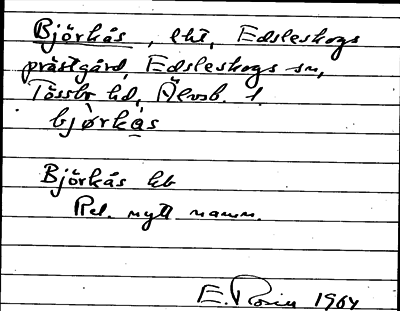 Björkås, lht, Edsleskogs
prästgård, Edsleskogs sn,
Tössbo hd, Älvsb. l.
bjørkås
Björkås hb
Rel. nytt namn.
E. Rosin 1964